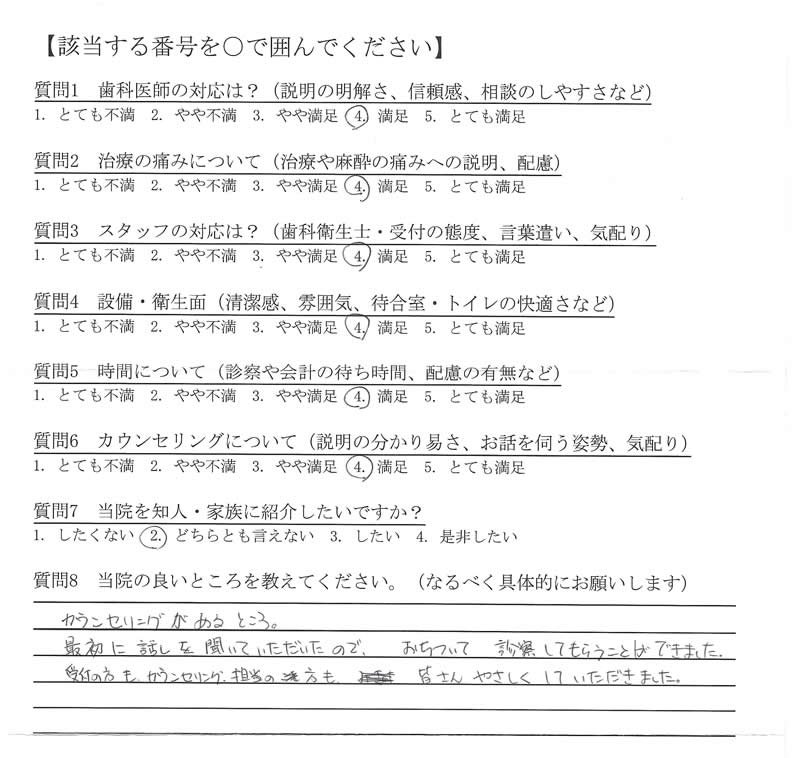 【該当する番号を〇で囲んでください】
質問1 歯科医師の対応は?(説明の明解さ、信頼感、相談のしやすさなど)
1. とても不満 2. やや不満 3. やや満足 4. 満足 5. とても満足
質問2 治療の痛みについて(治療や麻酔の痛みへの説明、配慮)
1. とても不満 2. やや不満 3. やや満足 4. 満足 5. とても満足
質問3 スタッフの対応は?(歯科衛生士・受付の態度、言葉遣い、気配り)
1. とても不満 2. やや不満 3. やや満足 4. 満足 5. とても満足
質問4 設備・衛生面(清潔感、雰囲気、待合室・トイレの快適さなど)
1. とても不満 2. やや不満 3. やや満足 4. 満足 5. とても満足
質問5 時間について(診察や会計の待ち時間、配慮の有無など)
1. とても不満 2. やや不満 3. やや満足 4. 満足 5. とても満足
質問6 カウンセリングについて(説明の分かり易さ、お話を伺う姿勢、気配り)
1. とても不満 2. やや不満 3. やや満足 4. 満足 5. とても満足
質問7 当院を知人・家族に紹介したいですか?
1. したくない 2. どちらとも言えない 3. したい 4. 是非したい
質問8 当院の良いところを教えてください。(なるべく具体的にお願いします)
カウンセリングがあるところ。
最初に話しを聞いていただいたので、おちついて診察してもらうことができました。
受付の方も、カウンセリング、担当の方も、皆さんやさしくしていただきました。